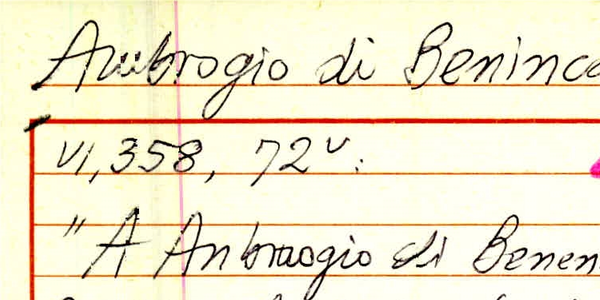 Ambrogio di Beninca
VI, 358, 72v:
"A Anbraogio di Benen